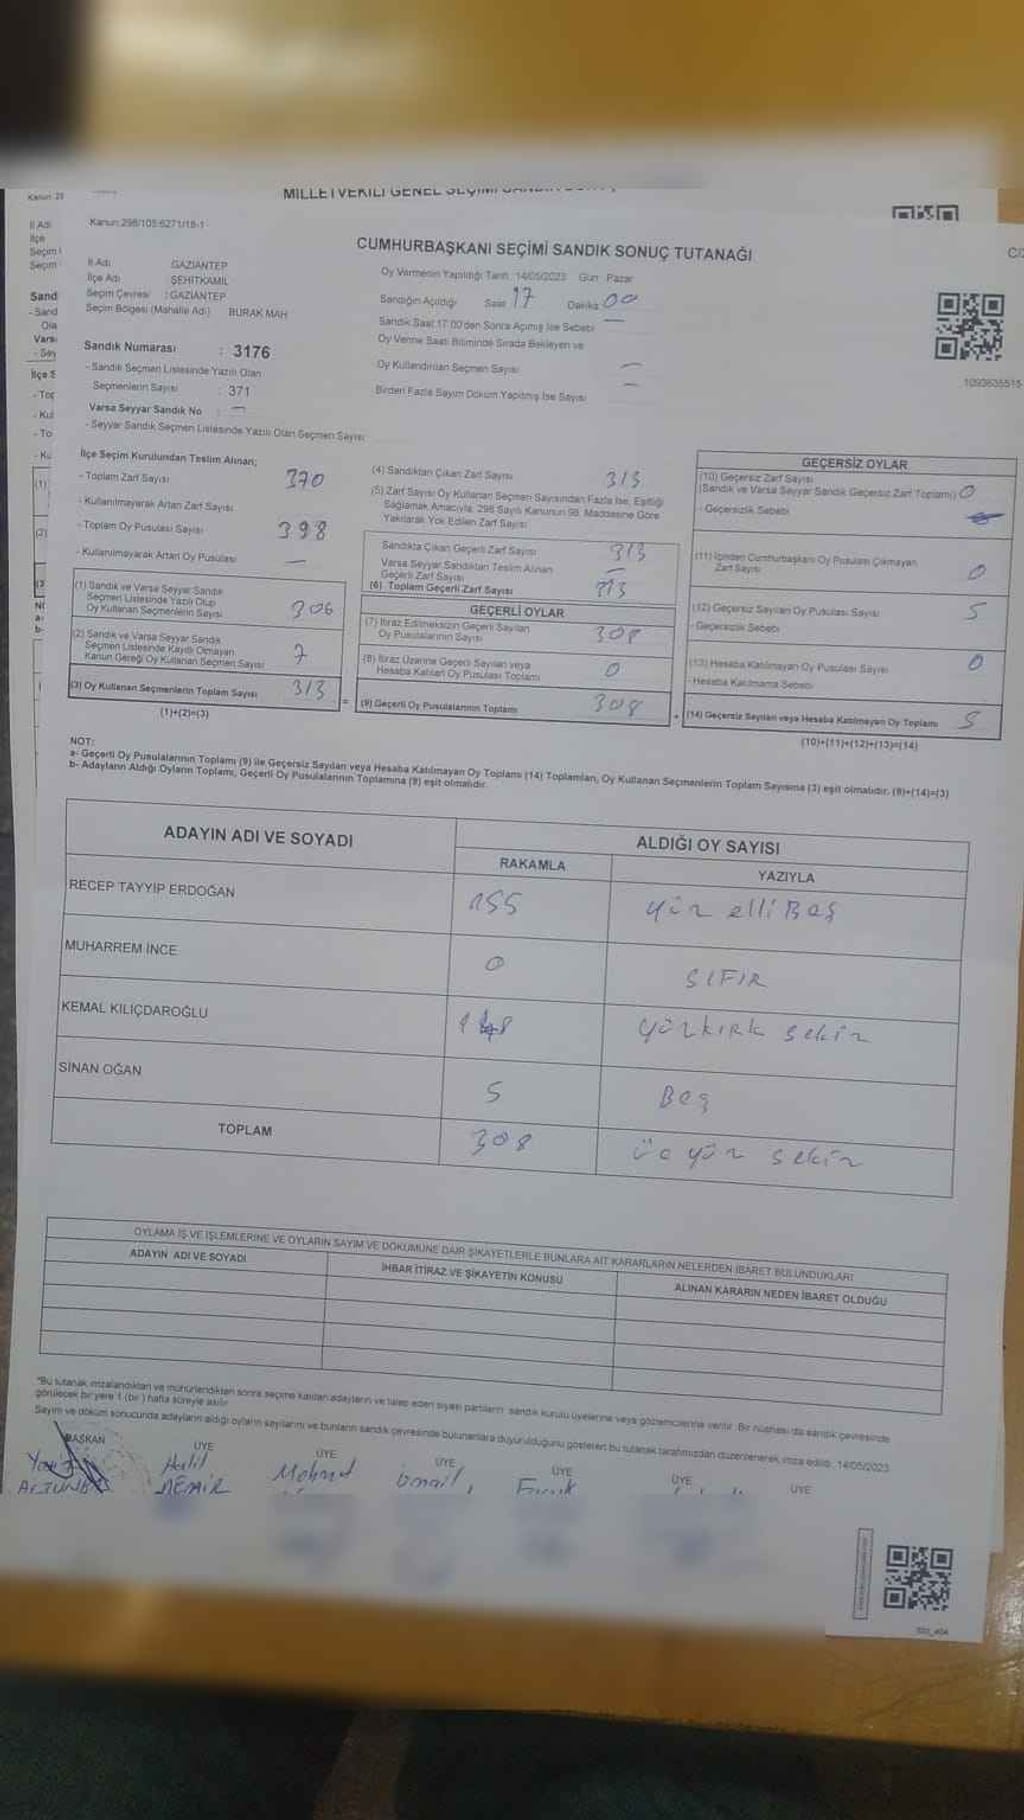 Kanun 29
MİLLETVEKİLİ GENEL SEÇİMİ
Kanun:298/105-6271/18-1
CUMHURBAŞKANI SEÇİMİ SANDIK SONUÇ TUTANAĞI
İl Adı GAZİANTEP
İlçe Adı ŞEHİTKAMİL
Seçim Çevresi : GAZİANTEP
Seçim Bölgesi (Mahalle Adı) BURAK MAH
Sandık Numarası : 3176
- Sandık Seçmen Listesinde Yazılı Olan
Seçmenlerin Sayısı : 371
Varsa Seyyar Sandık No : —
- Seyyar Sandık Seçmen Listesinde Yazılı Olan Seçmen Sayısı
Oy Vermenin Yapıldığı Tarih: 14/05/2023 Gün: Pazar
Sandığın Açıldığı Saat 17 Dakika 00
Sandık Saat 17:00'den Sonra Açılmış İse Sebebi —
Oy Verme Saati Bitiminde Sırada Bekleyen ve
Oy Kullandırılan Seçmen Sayısı —
Birden Fazla Sayım Döküm Yapılmış İse Sayısı —
1093635515
İlçe Seçim Kurulundan Teslim Alınan;
- Toplam Zarf Sayısı 370
- Kullanılmayarak Artan Zarf Sayısı
- Toplam Oy Pusulası Sayısı 398
- Kullanılmayarak Artan Oy Pusulası —
(1) Sandık ve Varsa Seyyar Sandık
Seçmen Listesinde Yazılı Olup
Oy Kullanan Seçmenlerin Sayısı 306
(2) Sandık ve Varsa Seyyar Sandık
Seçmen Listesinde Kayıtlı Olmayan
Kanun Gereği Oy Kullanan Seçmen Sayısı 7
(3) Oy Kullanan Seçmenlerin Toplam Sayısı 313
(1)+(2)=(3)
(4) Sandıktan Çıkan Zarf Sayısı 313
(5) Zarf Sayısı Oy Kullanan Seçmen Sayısından Fazla İse, Eşitliği
Sağlamak Amacıyla; 298 Sayılı Kanunun 98. Maddesine Göre
Yakılarak Yok Edilen Zarf Sayısı
Sandıkta Çıkan Geçerli Zarf Sayısı 313
Varsa Seyyar Sandıktan Teslim Alınan
Geçerli Zarf Sayısı —
(6) Toplam Geçerli Zarf Sayısı 313
GEÇERLİ OYLAR
(7) İtiraz Edilmeksizin Geçerli Sayılan
Oy Pusulalarının Sayısı 308
(8) İtiraz Üzerine Geçerli Sayılan veya
Hesaba Katılan Oy Pusulası Toplamı 0
= (9) Geçerli Oy Pusulalarının Toplamı 308
GEÇERSİZ OYLAR
(10) Geçersiz Zarf Sayısı
(Sandık ve Varsa Seyyar Sandık Geçersiz Zarf Toplamı) 0
- Geçersizlik Sebebi
(11) İçinden Cumhurbaşkanı Oy Pusulası Çıkmayan
Zarf Sayısı 0
(12) Geçersiz Sayılan Oy Pusulası Sayısı 5
- Geçersizlik Sebebi
(13) Hesaba Katılmayan Oy Pusulası Sayısı 0
- Hesaba Katılmama Sebebi
+ (14) Geçersiz Sayılan veya Hesaba Katılmayan Oy Toplamı 5
(10)+(11)+(12)+(13)=(14)
NOT:
a- Geçerli Oy Pusulalarının Toplamı (9) ile Geçersiz Sayılan veya Hesaba Katılmayan Oy Toplamı (14) Toplamları, Oy Kullanan Seçmenlerin Toplam Sayısına (3) eşit olmalıdır. (9)+(14)=(3)
b- Adayların Aldığı Oyların Toplamı, Geçerli Oy Pusulalarının Toplamına (9) eşit olmalıdır.
ADAYIN ADI VE SOYADI ALDIĞI OY SAYISI
RAKAMLA YAZIYLA
RECEP TAYYİP ERDOĞAN 155 yüz elli Beş
MUHARREM İNCE 0 SIFIR
KEMAL KILIÇDAROĞLU 148 yüzkırk sekiz
SİNAN OĞAN 5 Beş
TOPLAM 308 üçyüz sekiz
OYLAMA İŞ VE İŞLEMLERİNE VE OYLARIN SAYIM VE DÖKÜMÜNE DAİR ŞİKAYETLERLE BUNLARA AİT KARARLARIN NELERDEN İBARET BULUNDUKLARI
ADAYIN ADI VE SOYADI İHBAR İTİRAZ VE ŞİKAYETİN KONUSU ALINAN KARARIN NEDEN İBARET OLDUĞU
*Bu tutanak imzalandıktan ve mühürlendikten sonra seçime katılan adayların ve talep eden siyasi partilerin sandık kurulu üyelerine veya gözlemcilerine verilir. Bir nüshası da sandık çevresinde
görülecek bir yere 1 (bir) hafta süreyle asılır.
Sayım ve döküm sonucunda adayların aldığı oyların sayılarını ve bunların sandık çevresinde bulunanlara duyurulduğunu gösteren bu tutanak tarafımızdan düzenlenerek imza edildi. 14/05/2023
BAŞKAN ÜYE ÜYE ÜYE ÜYE ÜYE ÜYE
Halil Mehmet ismail
DEMİR